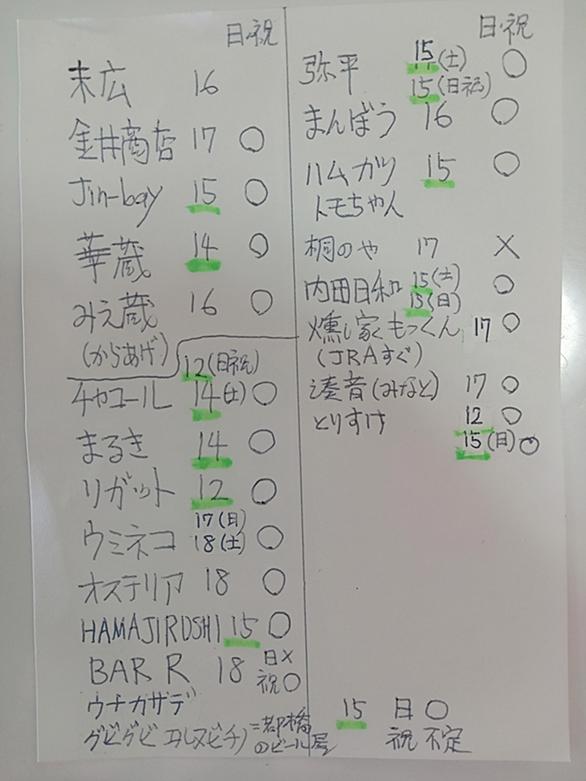 日・祝
末広 16
金井商店 17 ○
Jin-bay 15 ○
華蔵 14 ○
みえ蔵 16 ○
(からあげ)
12(日祝)
チャコール 14(土) ○
まるき 14 ○
リガット 12 ○
17(日)
ウミネコ 18(土) ○
オステリア 18 ○
HAMAJIRUSHI 15 ○
BAR R 18 日×
祝○
ウチカザデ
グビグビ 三都橋
のビール屋 15 日○
祝 不定
日・祝
弥平 15(土) ○
15(日祝)
まんぼう 16 ○
ハムカツ 15 ○
トモちゃん
桐のや 17 ×
内田日和 15(土) ○
15(日)
燻し家もっくん 17 ○
(JRAすぐ)
湊音(みなと) 17 ○
とりすけ 12 ○
15(日) ○